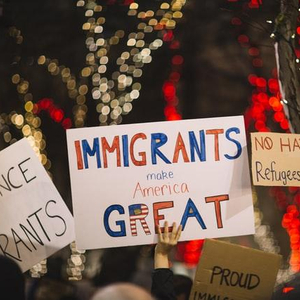 IMMIGRANTS
make
America
GREAT
NO HA
Refugees
NCE
GRANTS
PROUD